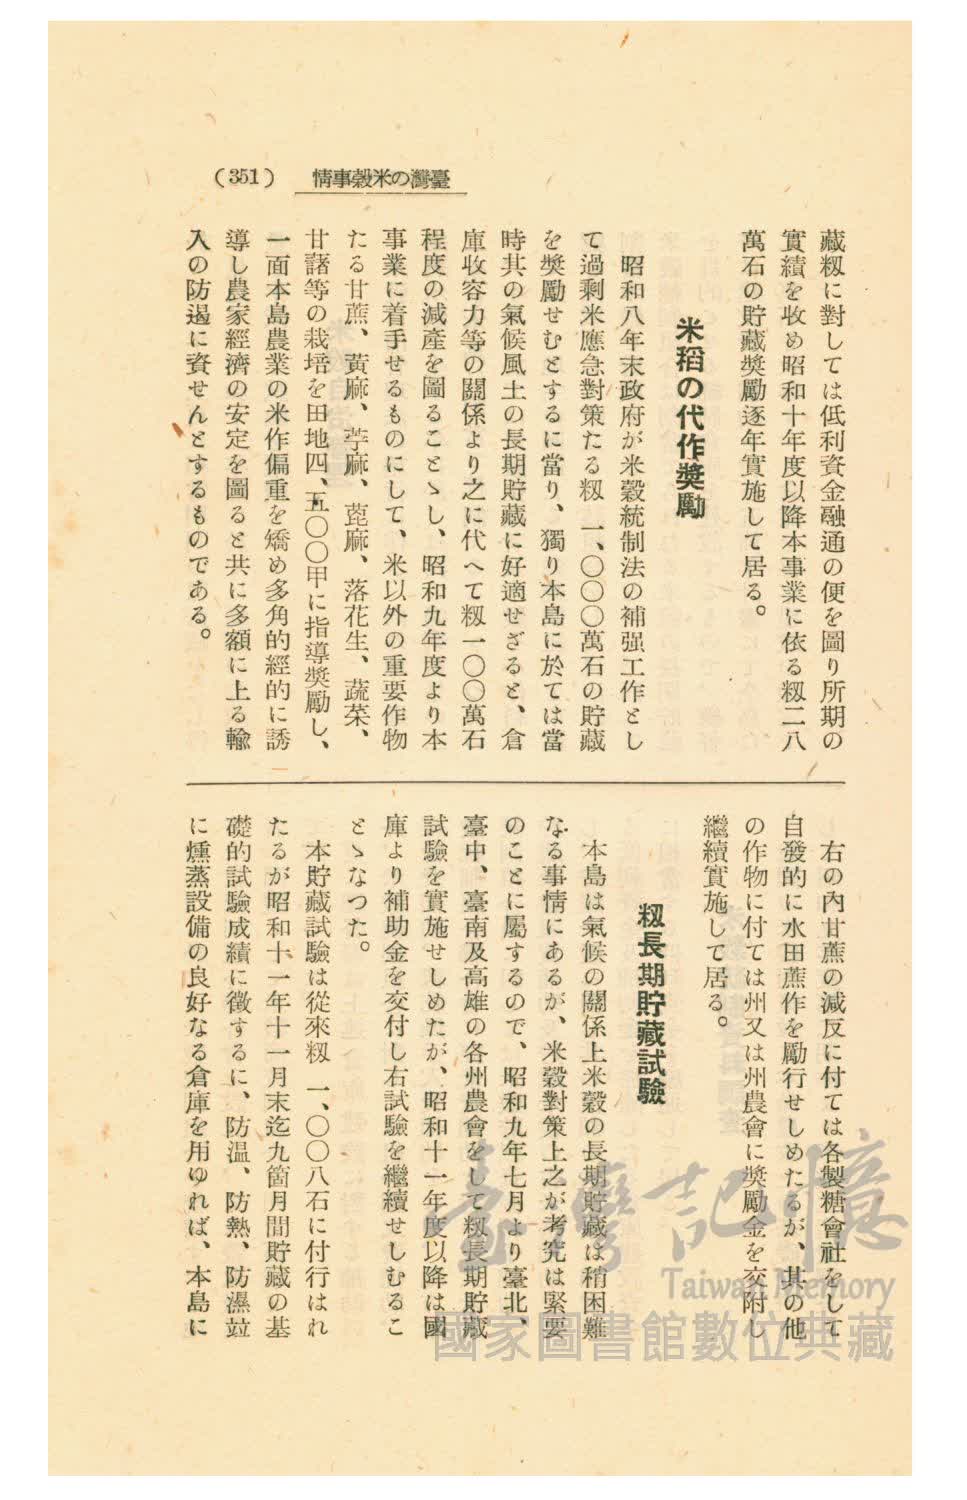 (351) 情事穀米の灣臺
藏籾に對しては低利資金融通の便を圖り所期の
實績を收め昭和十年度以降本事業に依る籾二八
萬石の貯藏奬勵逐年實施して居る。
米稻の代作奬勵
昭和八年末政府が米穀統制法の補强工作とし
て過剩米應急對策たる籾一、〇〇〇萬石の貯藏
を奬勵せむとするに當り、獨り本島に於ては當
時其の氣候風土の長期貯藏に好適せざると、倉
庫收容力等の關係より之に代へて籾一〇〇萬石
程度の減產を圖ることゝし、昭和九年度より本
事業に着手せるものにして、米以外の重要作物
たる甘蔗、黃麻、苧麻、蓖麻、落花生、蔬菜、
甘藷等の栽培を田地四、五〇〇甲に指導奬勵し、
一面本島農業の米作偏重を矯め多角的經的に誘
導し農家經濟の安定を圖ると共に多額に上る輸
入の防遏に資せんとするものである。
右の內甘蔗の減反に付ては各製糖會社をして
自發的に水田蔗作を勵行せしめたるが、其の他
の作物に付ては州又は州農會に奬勵金を交附し
繼續實施して居る。
籾長期貯藏試驗
本島は氣候の關係上米穀の長期貯藏は稍困難
なる事情にあるが、米穀對策上之が考究は緊要
のことに屬するので、昭和九年七月より臺北、
臺中、臺南及高雄の各州農會をして籾長期貯藏
試驗を實施せしめたが、昭和十一年度以降は國
庫より補助金を交付し右試驗を繼續せしむるこ
とゝなつた。
本貯藏試驗は從來籾一、〇〇八石に付行はれ
たるが昭和十一年十一月末迄九箇月間貯藏の基
礎的試驗成績に徵するに、防温、防熱、防濕竝
に燻蒸設備の良好なる倉庫を用ゆれば、本島に
臺灣記憶
Taiwan Memory
國家圖書館數位典藏